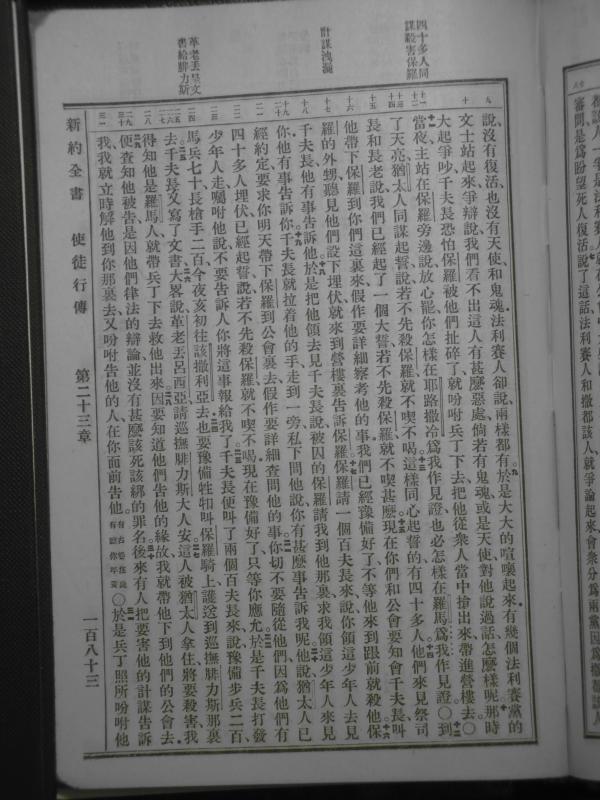 四十多人同
謀殺害保羅
計謀洩漏
革老丟呈文
書給腓力斯
說、沒有復活也沒有天使和鬼魂法利賽人卻說、兩樣都有於是大大的喧嚷起來有幾個法利賽黨的
文士站起來爭辯說我們看不出這人有甚麼惡處倘若有鬼魂或是天使對他說過話怎麼樣呢那時
大起爭吵千夫長恐怕保羅被他們扯碎了就吩咐兵丁下去把他從衆人當中搶出來帶進營樓去○
當夜主站在保羅旁邊說放心罷你怎樣在耶路撒冷爲我作見證也必怎樣在羅馬爲我作見證○到
了天亮猶太人同謀起誓說若不先殺保羅就不喫不喝這樣同心起誓的有四十多人他們來見祭司
長和長老說我們已經起了一個大誓若不先殺保羅就不喫甚麼現在你們和公會要知會千夫長叫
他帶下保羅到你們這裏來假作要詳細察考他的事我們已經豫備好了不等他來到跟前就殺他保
羅的外甥聽見他們設下埋伏就來到營樓裏告訴保羅保羅請一個百夫長來說你領這少年人去見
千夫長他有事告訴他於是把他領去見千夫長說被囚的保羅請我到他那裏求我領這少年人來見
你他有事告訴你千夫長就拉着他的手走到一旁私下問他說你有甚麼事告訴我呢他說猶太人已
經約定要求你明天帶下保羅到公會裏去假作要詳細查問他的事你切不要隨從他們因爲他們有
四十多人埋伏已經起誓說若不先殺保羅就不喫不喝現在豫備好了只等你應允於是千夫長打發
少年人走囑咐他說不要告訴人你將這事報給我了千夫長便叫了兩個百夫長來說豫備步兵二百
馬兵七十長槍手二百今夜亥初往該撒利亞去也要豫備牲口叫保羅騎上護送到巡撫腓力斯那裏
去千夫長又寫了文書大畧說革老丟呂西亞請巡撫腓力斯大人安這人被猶太人拿住將要殺害我
得知他是羅馬人就帶兵丁下去救他出來因要知道他們告他的緣故我就帶他下到他們的公會去
便查知他被告是因他們律法的辯論並沒有甚麼該死該綁的罪名後來有人把要害他的計謀告訴
我我就立時解他到你那裏去又吩咐告他的人在你面前告他○於是兵丁照所吩咐他
新約全書 使徒行傳 第二十三章 一百八十三
審問是爲盼望死人復活說了這話法利賽人和撒都該人就爭論起來會衆分爲兩黨因爲撒都該人